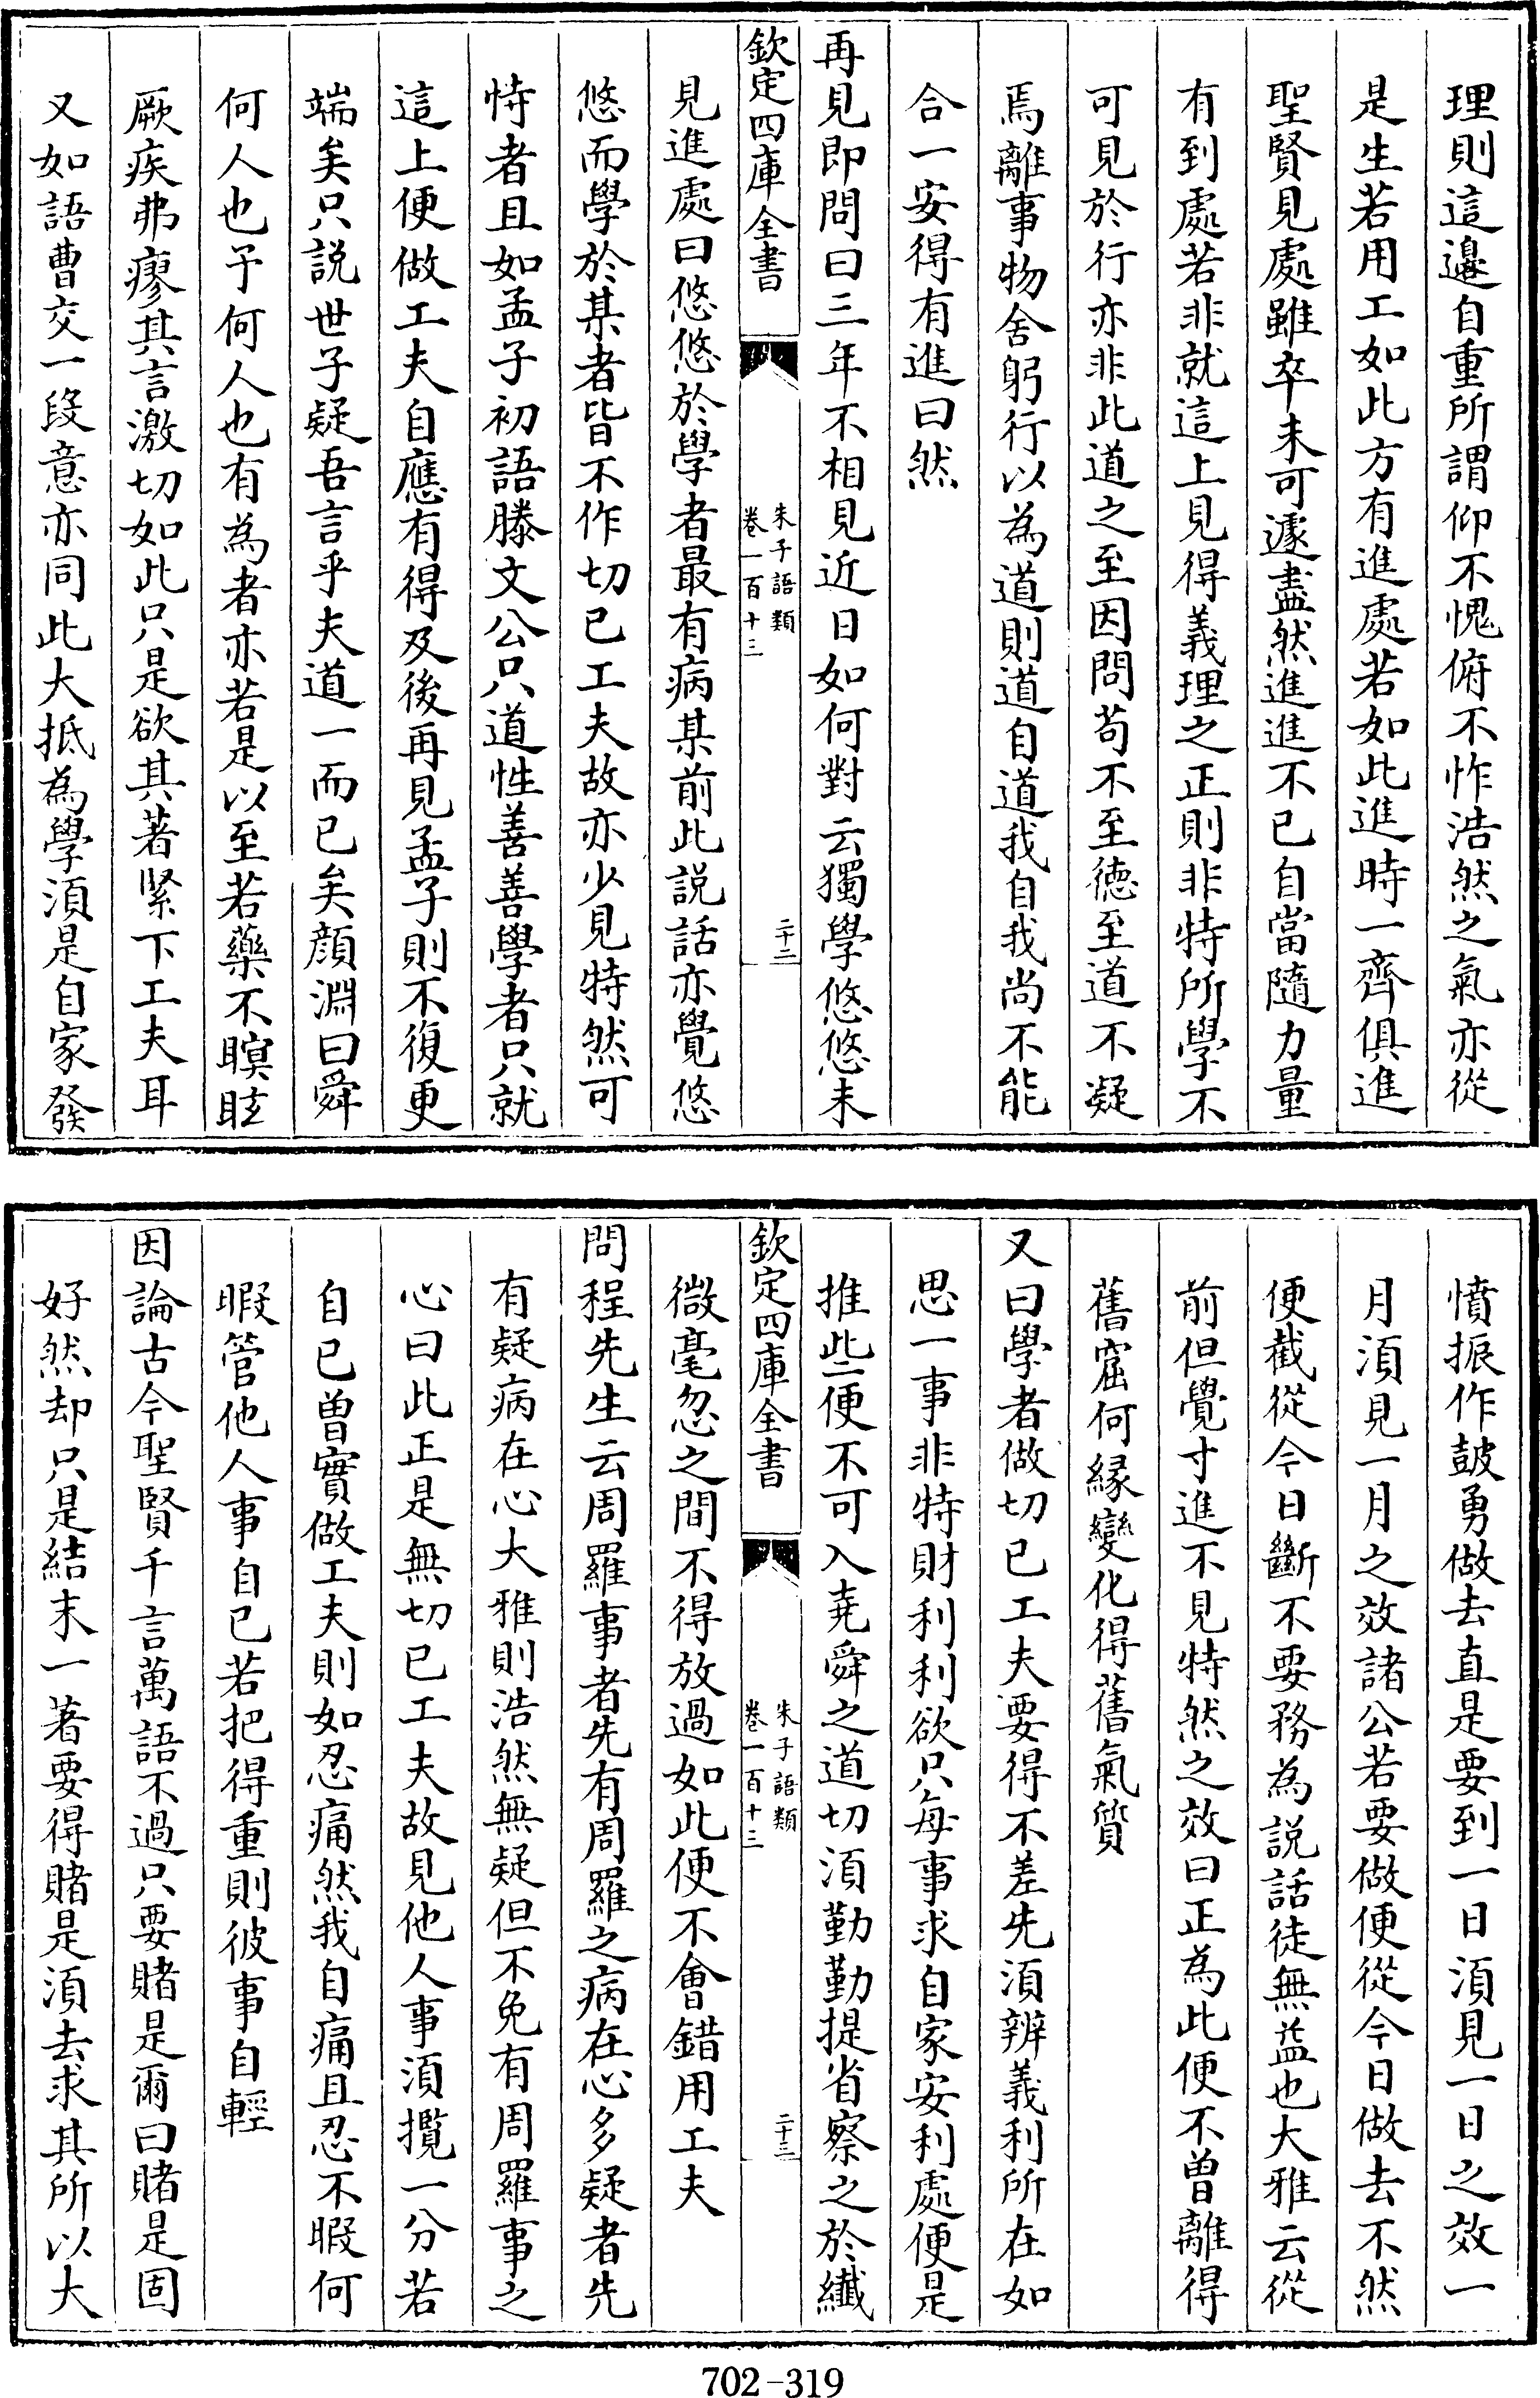 理則這邊自重所謂仰不愧俯不怍浩然之氣亦從
是生若用工如此方有進處若如此進時一齊俱進
聖賢見處雖卒未可遽盡然進進不已自當隨力量
有到處若非就這上見得義理之正則非特所學不
可見於行亦非此道之至因問苟不至德至道不凝
焉離事物舍躬行以為道則道自道我自我尚不能
合一安得有進曰然
再見即問曰三年不相見近日如何對云獨學悠悠未
欽定四庫全書
朱子語類
卷一百十三
二十二
見進處曰悠悠於學者最有病某前此説話亦覺悠
悠而學於某者皆不作切已工夫故亦少見特然可
恃者且如孟子初語滕文公只道性善善學者只就
這上便做工夫自應有得及後再見孟子則不復更
端矣只説世子疑吾言乎夫道一而已矣顔淵曰舜
何人也予何人也有為者亦若是以至若藥不瞑眩
厥疾弗瘳其言激切如此只是欲其著緊下工夫耳
又如語曹交一段意亦同此大抵為學湏是自家發
憤振作鼓勇做去直是要到一日湏見一日之效一
月湏見一月之效諸公若要做便從今日做去不然
便截從今日斷不要務為説話徒無益也大雅云從
前但覺寸進不見特然之效曰正為此便不曽離得
舊窟何緣變化得舊氣質
又曰學者做切已工夫要得不差先湏辨義利所在如
思一事非特財利利欲只每事求自家安利處便是
推此便不可入堯舜之道切湏勤勤提省察之於纎
欽定四庫全書
朱子語類
卷一百十三
二十三
微毫忽之間不得放過如此便不會錯用工夫
問程先生云周羅事者先有周羅之病在心多疑者先
有疑病在心大雅則浩然無疑但不免有周羅事之
心曰此正是無切已工夫故見他人事湏攬一分若
自已曽實做工夫則如忍痛然我自痛且忍不暇何
暇管他人事自已若把得重則彼事自輕
因論古今聖賢千言萬語不過只要賭是爾曰賭是固
好然却只是結末一著要得賭是湏去求其所以大
702-319